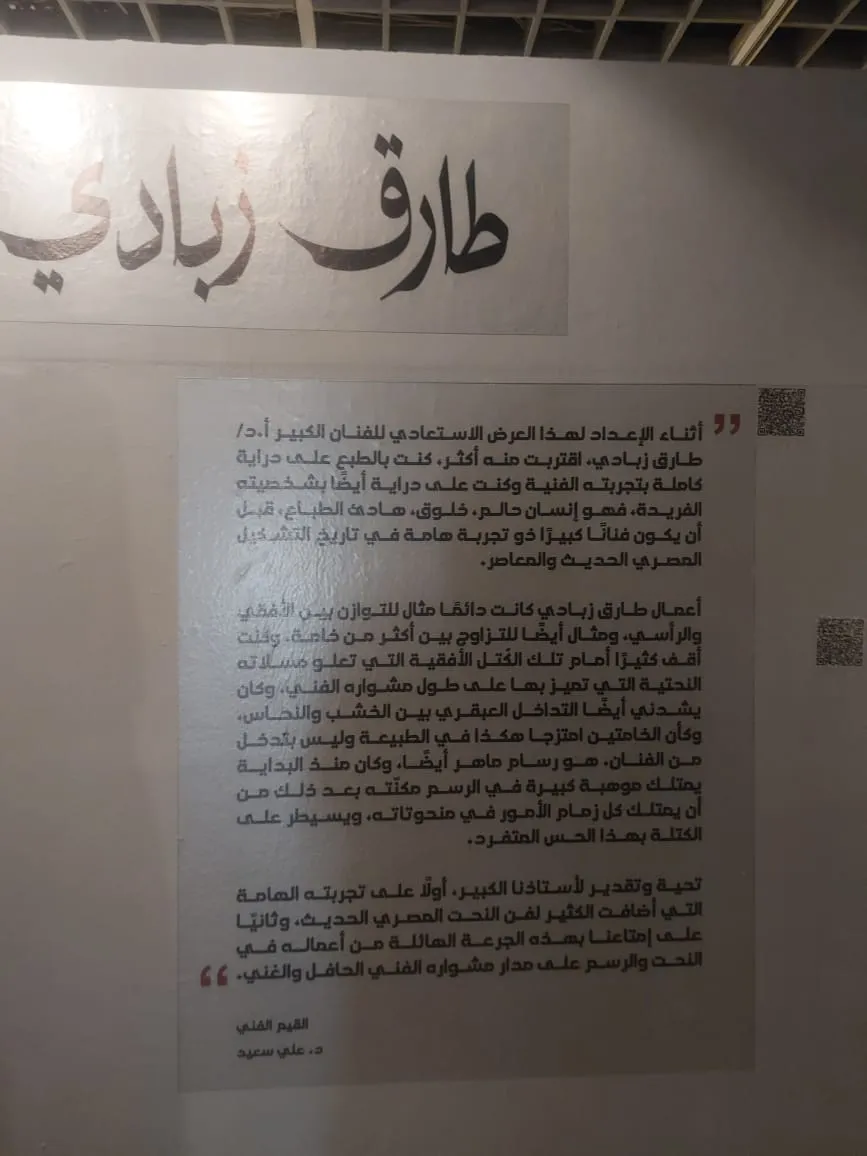 طارق زبادي
" أثناء الإعداد لهذا العرض الاستعادي للفنان الكبير أ.د/
طارق زبادي، اقتربت منه أكثر، كنت بالطبع على دراية
كاملة بتجربته الفنية وكنت على دراية أيضًا بشخصيته
الفريدة، فهو إنسان حالم، خلوق، هادئ الطباع، قبل
أن يكون فنانًا كبيرًا ذو تجربة هامة في تاريخ التشكيل
المصري الحديث والمعاصر.
أعمال طارق زبادي كانت دائمًا مثال للتوازن بين الأفقي
والرأسي، ومثال أيضًا للتزاوج بين أكثر من خامة، وكنت
أقف كثيرًا أمام تلك الكُتل الأفقية التي تعلو مسلاته
النحتية التي تميز بها على طول مشواره الفني، وكان
يشدني أيضًا التداخل العبقري بين الخشب والنحاس،
وكأن الخامتين امتزجا هكذا في الطبيعة وليس بتدخل
من الفنان، هو رسام ماهر أيضًا، وكان منذ البداية
يمتلك موهبة كبيرة في الرسم مكنّته بعد ذلك من
أن يمتلك كل زمام الأمور في منحوتاته، ويسيطر على
الكتلة بهذا الحس المتفرد.
تحية وتقدير لأستاذنا الكبير، أولًا على تجربته الهامة
التي أضافت الكثير لفن النحت المصري الحديث، وثانيًا
على إمتاعنا بهذه الجرعة الهائلة من أعماله في
النحت والرسم على مدار مشواره الفني الحافل والغني. "
القيم الفني
د. علي سعيد